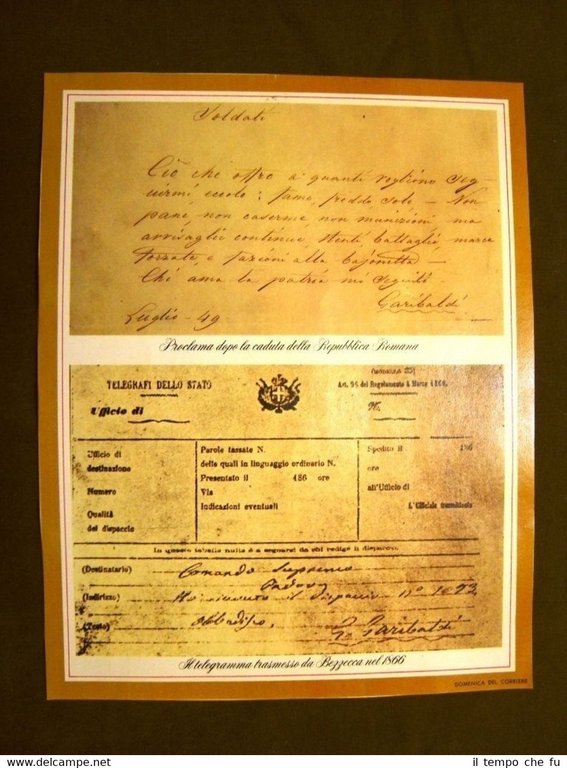 Soldati
Ciò che offro a quanti vogliono seg-
uirmi eccolo: fame, freddo sole – Non
pane, non caserme non munizioni ma
avvisaglie continue, stenti battaglie, marce
forzate e fazioni alla bajonetta –
Chi ama la patria mi seguiti –
Garibaldi
Luglio - 49
Proclama dopo la caduta della Repubblica Romana
TELEGRAFI DELLO STATO
Ufficio di
(MODELLO 25)
Art. 95 del Regolamento 4 Marzo
N.
Ufficio di
destinazione
Numero
Qualità
del dispaccio
Parole tassate N.
delle quali in linguaggio ordinario N.
Presentato il 186 ore
Via
Indicazioni eventuali
Spedito il 186
ore
all'Ufficio di
L'Ufficiale trasmittente
In questa tabella nulla è a segnarsi da chi redige il dispaccio.
(Destinatario) Comando Supremo
(Indirizzo) Padova
Ho ricevuto il dispaccio nº 1073
(Testo) Obbedisco.
G. Garibaldi
Il telegramma trasmesso da Bezzecca nel 1866
DOMENICA DEL CORRIERE
il tempo che fu